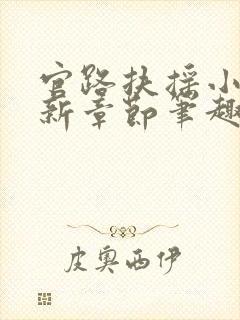 官路扶摇小
新章节笔趣
皮奥西伊